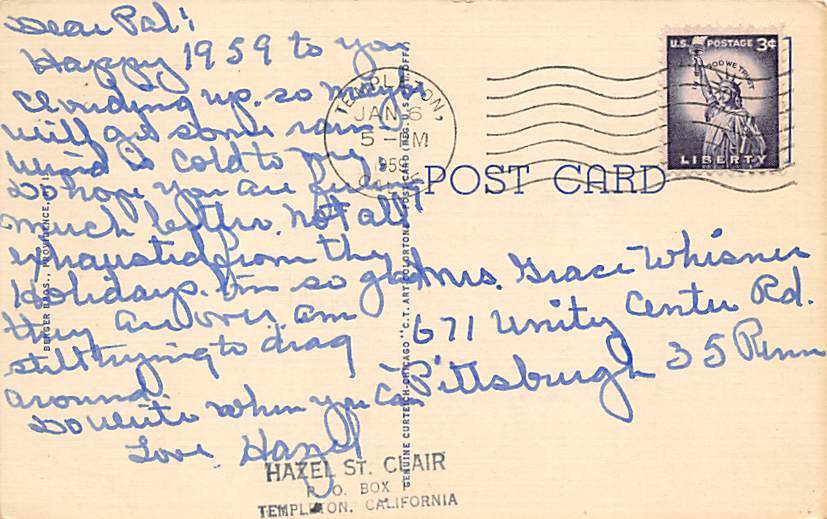 Dear Pal:
Happy 1959 to you
clouding up. so maybe
will get some rain
wind is cold to me
Do hope you are feeling
much better. not all
exhausted from the
Holidays. I'm so glad
they are over. am
still trying to drag
around.
Do write when you can
Love Hazel
HAZEL ST. CLAIR
P. O. BOX
TEMPLETON, CALIFORNIA
BERGER BROS., PROVIDENCE,
GENUINE CURTEICH-CHICAGO "C.T. ART-COLORTONE" POST CARD (REG. U.S. PAT. OFF.)
TEMPLETON,
JAN 6
5 - PM
1959
U.S. POSTAGE 3¢
IN GOD WE TRUST
LIBERTY
POST CARD
Mrs. Grace Whisner
671 Unity Center Rd.
Pittsburgh 35 Penn